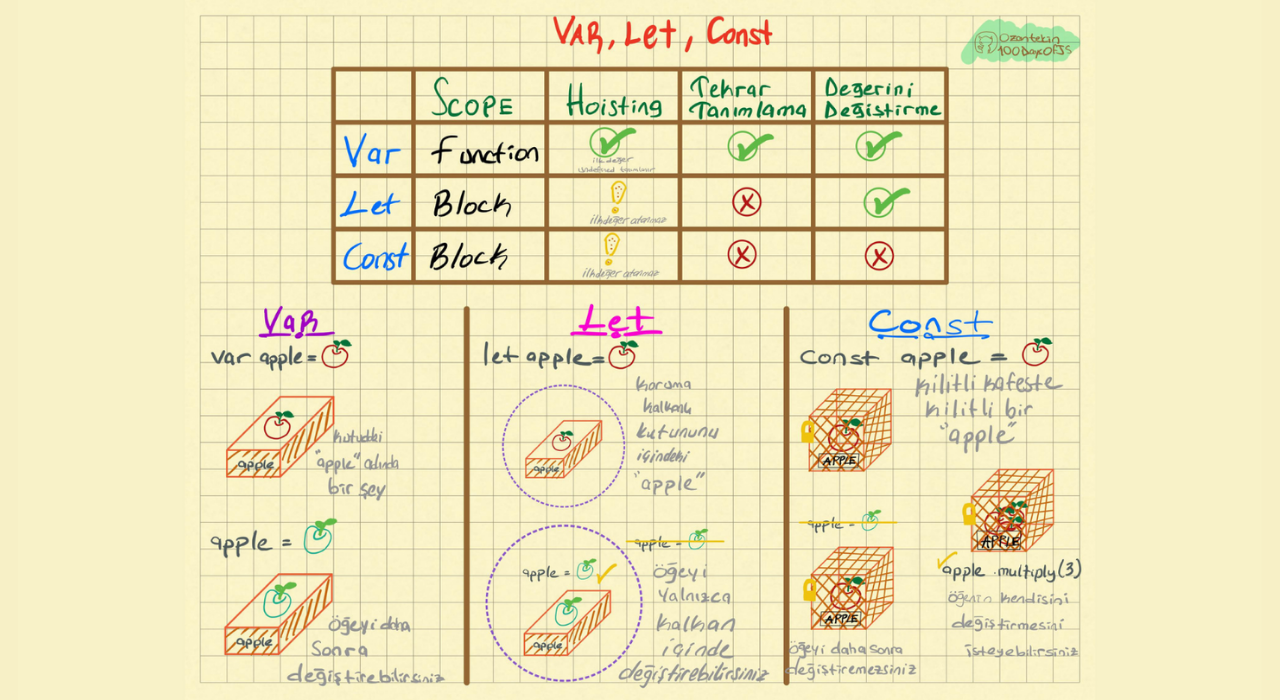 VAR, Let, Const
Ozantekin
100DaysOFJS
SCOPE
Hoisting
Tekrar
Tanımlama
Değerini
Değiştirme
Var
Function
ilk değer
undefined tanımlanır
Let
Block
ilk değer atanmaz
Const
Block
ilk değer atanmaz
Var
var apple =
apple
kutudaki
"apple" adında
bir şey
apple =
apple
öğeyi daha
Sonra
değiştirebilirsiniz
Let
let apple =
apple
koruma
kalkanlı
kutununu
içindeki
"apple"
apple =
apple =
apple
öğeyi
Yalnızca
kalkan
içinde
değiştirebilirsiniz
Const
Const apple =
kilitli kafeste
kilitli bir
"apple"
APPLE
apple =
APPLE
öğeyi daha sonra
değiştiremezsiniz
APPLE
apple.multiply(3)
öğenin kendisini
değiştirmesini
isteyebilirsiniz